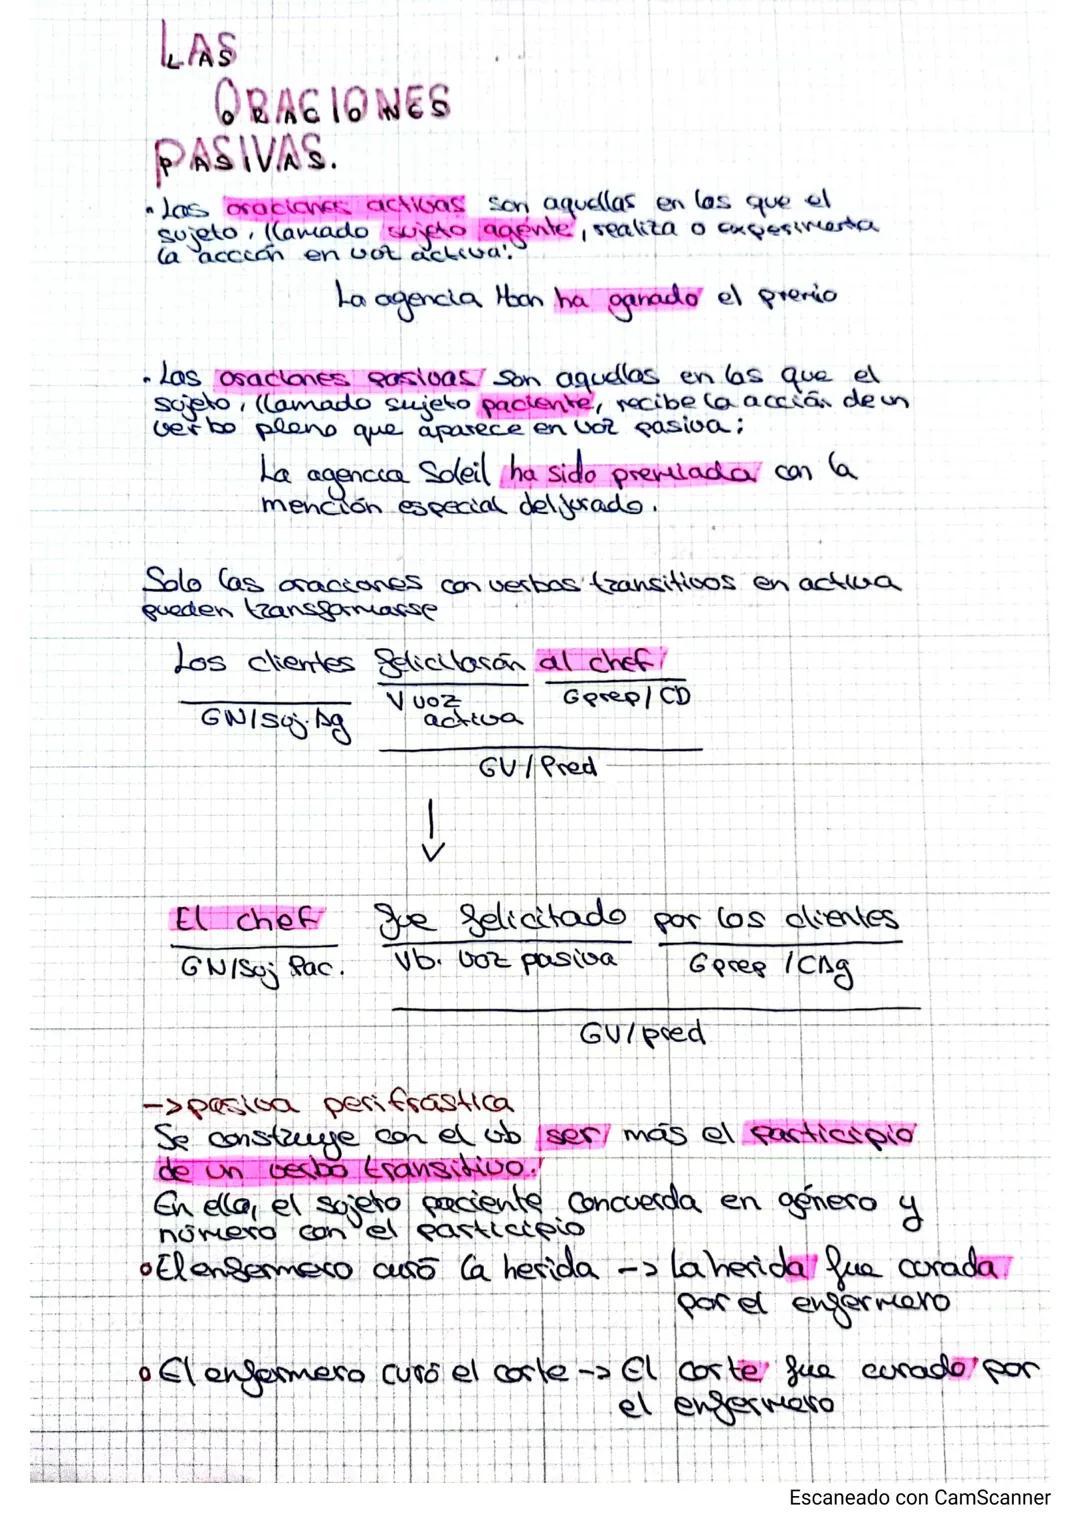 LAS
ORACIONES
PASIVAS.
• Las oraciones activas son aquellas en las que el
sujeto, llamado sujeto agente, realiza o experimenta
la acción en voz activa:
La agencia ha ganado el premio
• Las oraciones pasivas son aquellas en las que el
sujeto, llamado sujeto paciente, recibe la acción de un
verbo pleno que aparece en voz pasiva:
La agencia Soleil ha sido premiada con la
mención especial del jurado.
Solo las oraciones con verbos transitivos en activa
pueden transformarse
Los clientes felicitarán al chef
GN/Suj. Ag V voz activa Gprep/CD
GV/Pred
↓
El chef fue felicitado por los clientes
GN/Suj Pac. Vb. voz pasiva Gprep/CAg
GV/pred
-> pasiva perifrástica
Se construye con el vb ser más el participio
de un verbo transitivo.
En ella, el sujeto paciente concuerda en género y
número con el participio
o El enfermero curó la herida -> La herida fue curada
por el enfermero
o El enfermero curó el corte -> El corte fue curado por
el enfermero
Escaneado con CamScanner